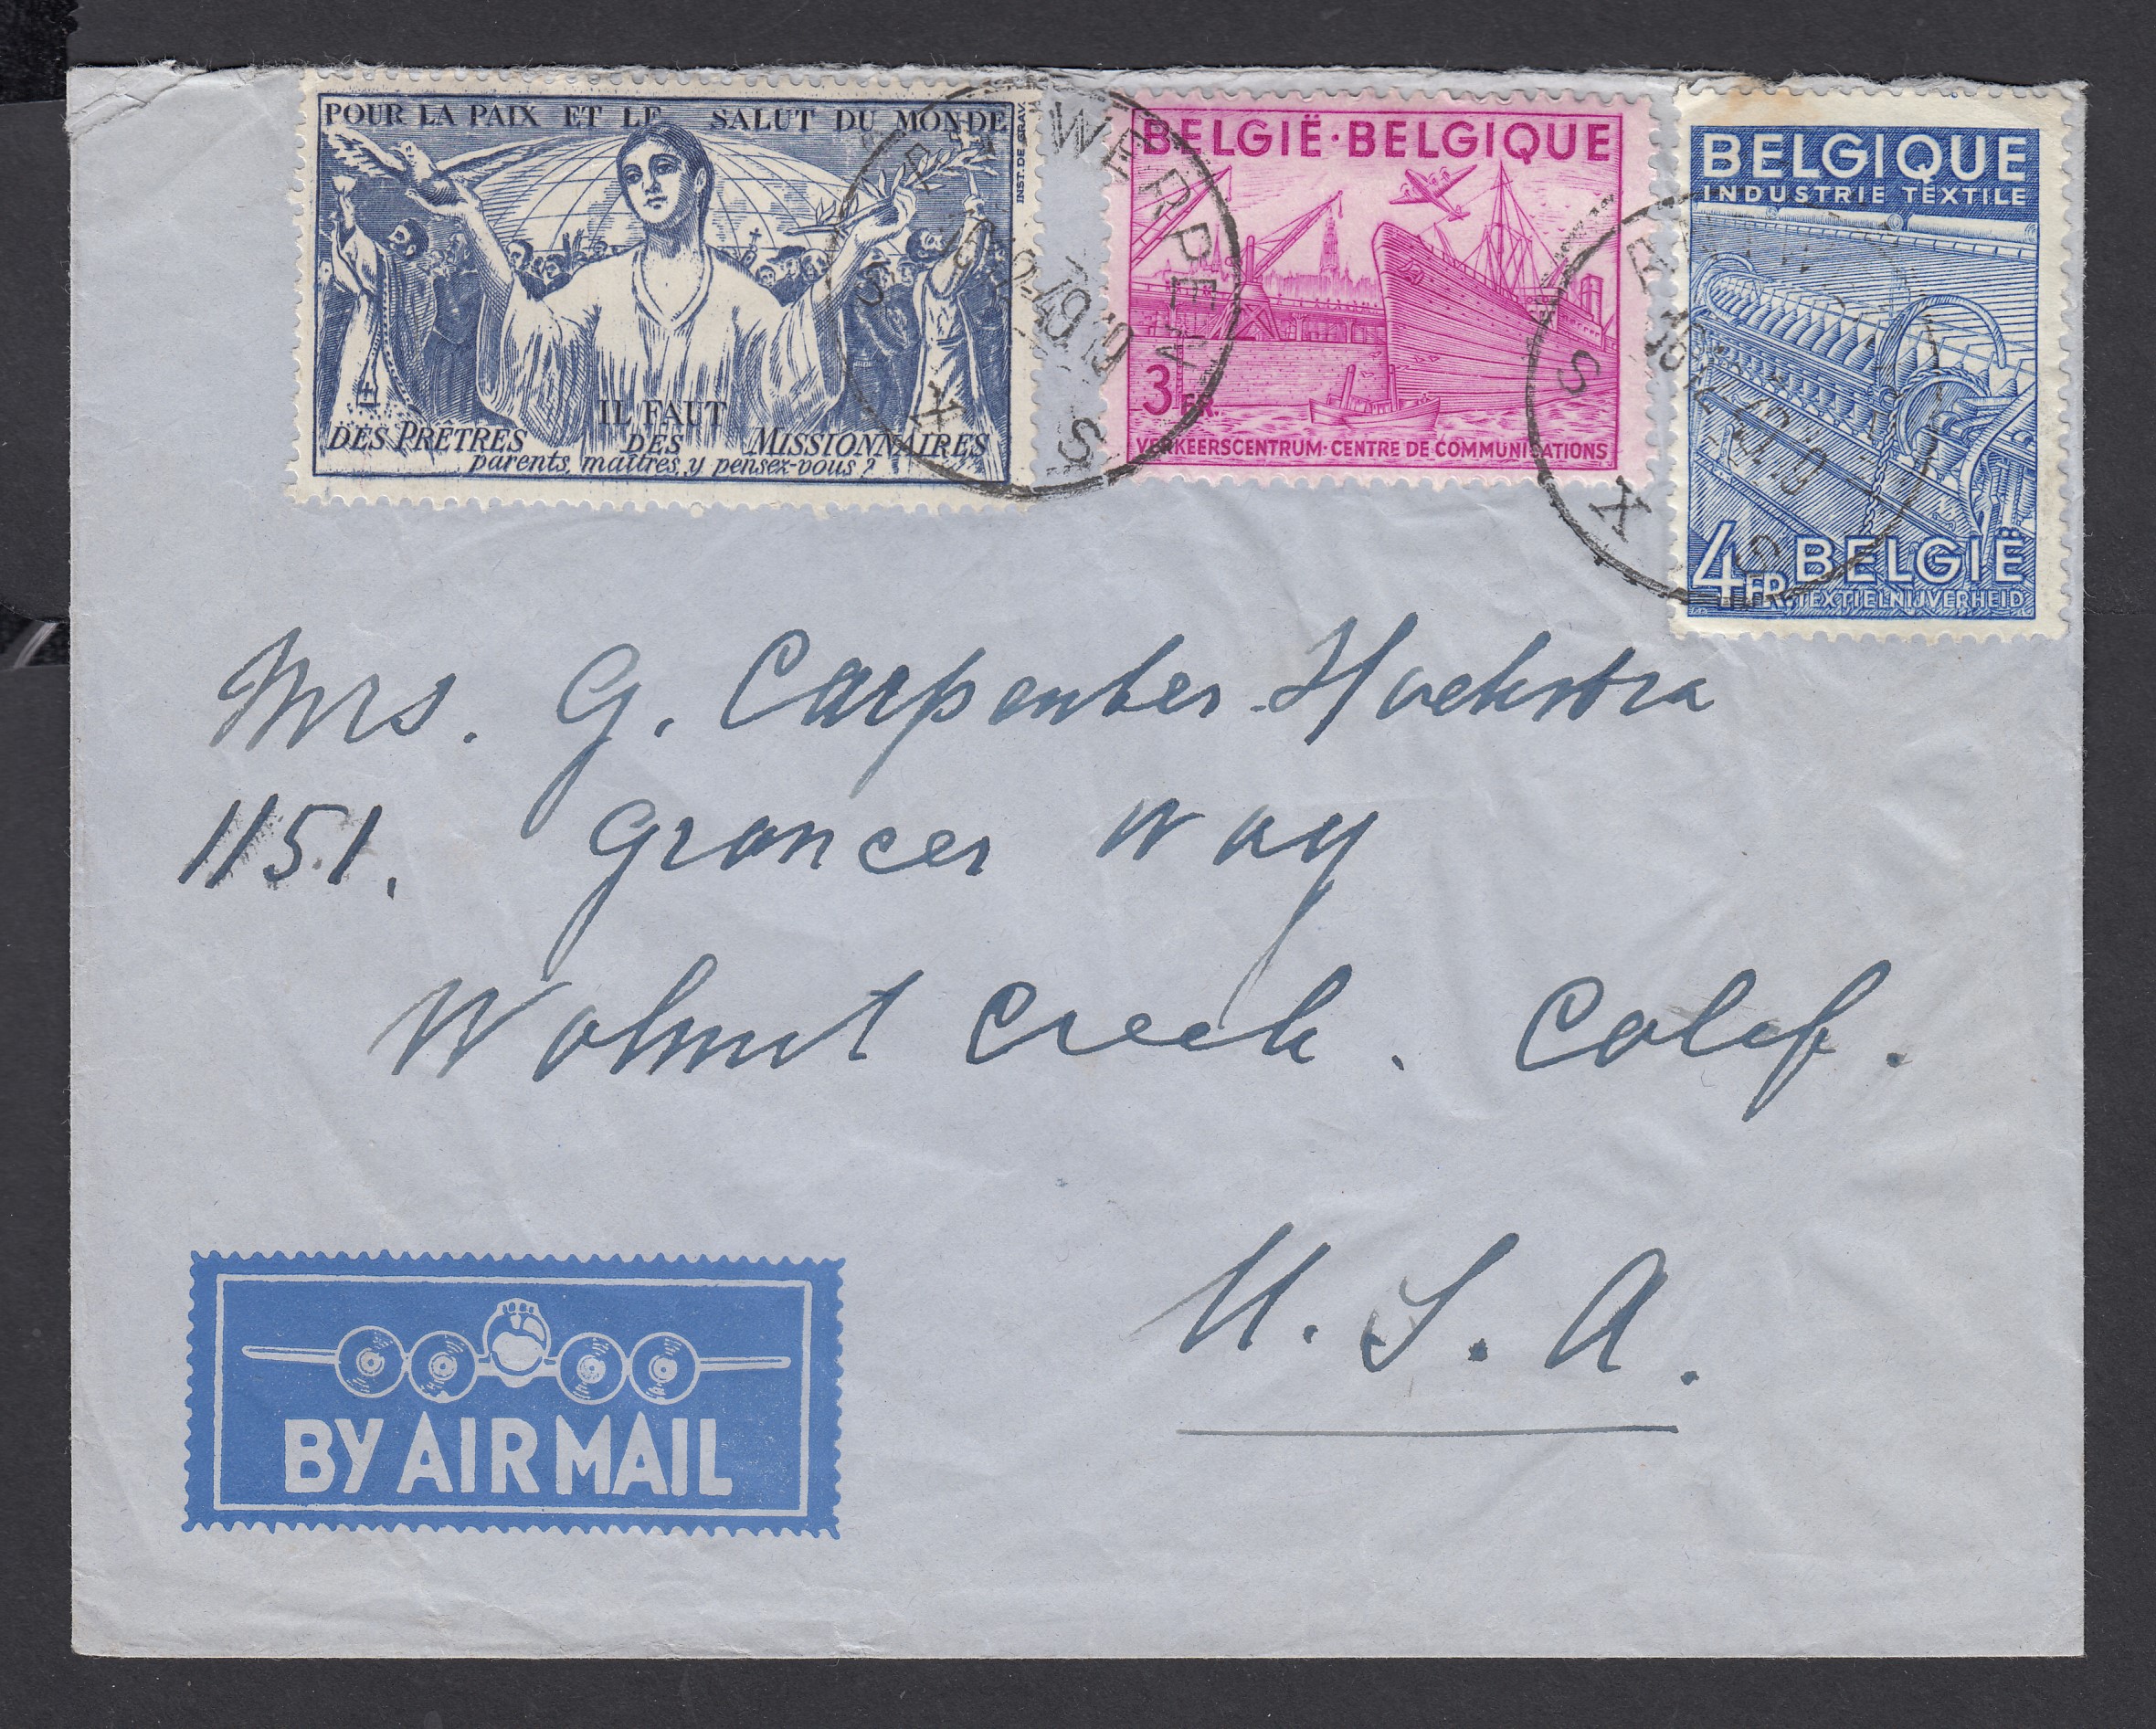 POUR LA PAIX ET LE SALUT DU MONDE
INST. DE GRAV.
IL FAUT
DES PRÊTRES DES MISSIONNAIRES
parents, maîtres, y pensez-vous?
BELGIË·BELGIQUE
3 FR.
VERKEERSCENTRUM·CENTRE DE COMMUNICATIONS
BELGIQUE
INDUSTRIE TEXTILE
4 FR. BELGIË
TEXTIELNIJVERHEID
Mrs. G. Carpenter-Hoekstra
1151. Grancer Way
Walnut Creek. Calif.
U.S.A.
BY AIR MAIL